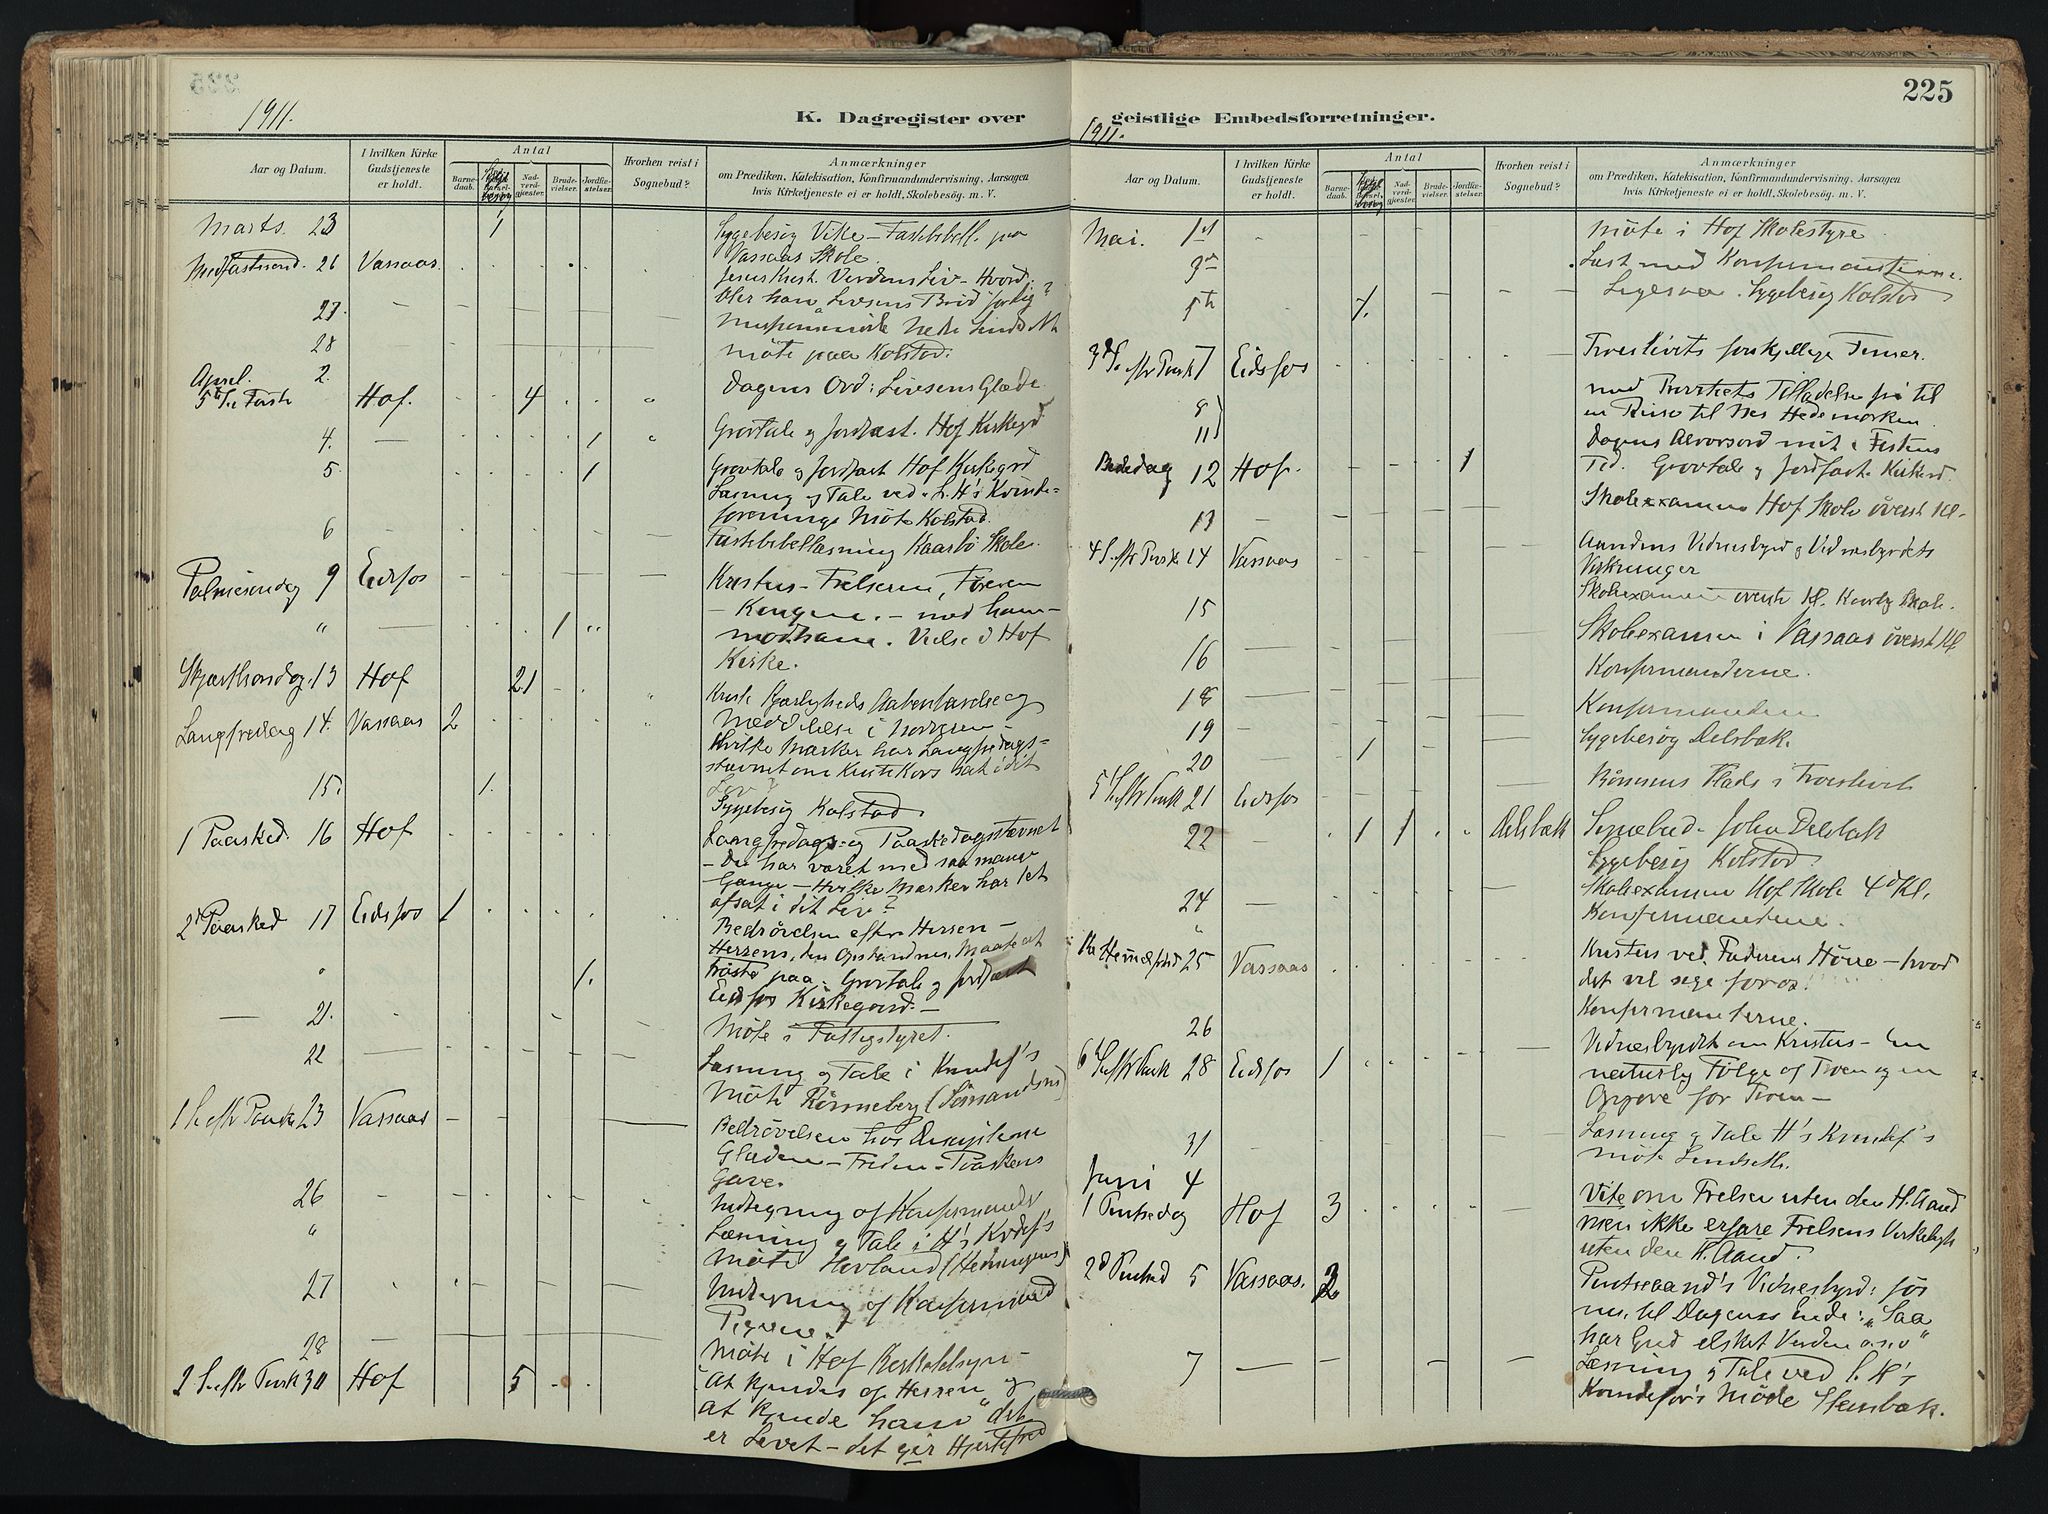 225
1911.
K. Dagregister over
geistlige Embedsforretninger.
1911.
Aar og Datum.
I hvilken Kirke Gudstjeneste er holdt.
Antal
Barnedaab.
Nadverdgjester.
Brudevielser.
Jordfæstelser.
Hvorhen reist i Sognebud?
Anmærkninger
om Prædiken, Katekisation, Konfirmandundervisning, Aarsagen
hvis Kirketjeneste ei er holdt, Skolebesøg. m. V.
Marts. 23 1 Sygebesøg Vike - paa
Vassaas Skole.
26 Vassaas Jesus Krist. Verdens Liv - Hvord:
bler han Livsens Brød for dig?
27
28 Møte paa Kolstad.
April. 2.
Hof. 4 Dagens Ord: Livsens Glæde
4. 1 Gravtale og Jordfæst. Hof Kirkegd
5 1 Gravtale og Jordfæst Hof Kirkegrd
Læsning og Tale ved L. H's Kvinde-
forenings Møte Kolstad.
6 Fastebibellæsning Kaarbø Skole.
Palmesøndag 9 Eidsfos Kristus - Frelseren,
- Kongen. - med ham -
" 1 mod ham. Vielse i Hof
Kirke.
Skjærthorsdag 13 Hof 21 Kristi Kjærligheds
Langfredag 14. Vassaas 2 Meddelelse i
Hvilke Mærker har Langfredags-
stævnet om Kristi Kors sat i dit
Liv?
15. 1. Sygebesøg Kolstad
1 Paasked. 16 Hof Langfredags- og Paaskedagsstævnet
- Du har været med saa mange
Gange - Hvilke Mærker har det
afsat i dit Liv?
2d Paasked 17 Eidsfos 1 Bedrøvelsen efter Herren -
Herrens, den Opstandnes, Maate at
" 1. trøste paa. Gravtale og Jordfæst
Eidsfos Kirkegaard. -
21. Møte i Fattigstyret.
22 Læsning og Tale i Kvindef's
Møte Rønneberg (Sømandsm)
1 S. eftr Paaske 23 Vassaas Bedrøvelsen hos Disciplene
Glæden - Freden - Paaskens
Gave.
26 Indtegning af Konfirmander
" Læsning og Tale i H's Kvdef's
Møte Hevland (Hedningems)
27 Indtegning af Konfirmand
Pigene.
28 Møte i Hof
2 S. eftr Paask 30 Hof 5 "At kjendes af Herren og
at kjende ham" det
er Livet - det gir Hjertefred
Aar og Datum.
I hvilken Kirke Gudstjeneste er holdt.
Antal
Barnedaab.
Nadverdgjester.
Brudevielser.
Jordfæstelser.
Hvorhen reist i Sognebud?
Anmærkninger
om Prædiken, Katekisation, Konfirmandundervisning, Aarsagen
hvis Kirketjeneste ei er holdt, Skolebesøg. m. V.
Mai. 1st Møte i Hof Skolestyre
3de Læst med Konfirmanterne.
5te 1. Ligesaa. Sygebesøg Kolstad
3d S. eftr Paask 7 Eidsfos Troeslivets forskjellige
8 med Provstiets Tilladelse fri til
11 en Reise til Nes Hedemarken.
Dagens Alvorsord midt i Festens
Bededag 12 Hof. 1 Tid. Gravtale og Jordfæst. Kirkegd.
13 Skoleexamen Hof Skole øverst Kl.
4 S. eftr Paask 14 Vassaas Aandens Vidnesbyrd og Vidnesbyrdets
Virkninger
15 Skoleexamen øverste Kl. Skole.
16 Skoleexamen i Vassaas øverst Kl
18 Konfirmanderne.
19 Konfirmanden
20 1 Sygebesøg Delsbæk.
5 S. eftr Paask 21 Eidsfos Bønnens Plads i Troeslivet
22 1 1 Delsbæk Sognebud. John Delsbæk
Sygebesøg Kolstad.
24 Skoleexamen Hof Skole 4d Kl.
Konfirmanterne.
25 Vassaas Kristus ved Faderens Høire - hvad
det vil sige for os.
26 Konfirmanterne.
6 S. eftr Paask 28 Eidsfos 1 Vidnesbyrdet om Kristus - En
naturlig Følge af Troen og en
Opgave for Troen -
31 Læsning og Tale H's Kvindef's
Møte Lindseth.
Juni 4
1 Pintsedag Hof 3 Vite om Frelsen uten den H. Aand
men ikke erfare Frelsens Virkelighet
uten den H. Aand.
2d Pintsed 5 Vassaas. 2 Pintseaand's Vidnesbyrd: før
nu, til Dagenes Ende: "Saa
har Gud elsket Verden o.s.v"
7 Læsning og Tale ved
Kvindefor's Møde Stensbæk.